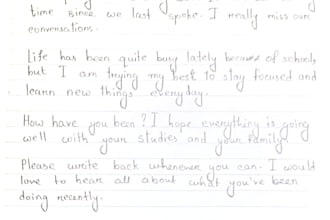 time since we last spoke. I really miss our
conversations.
Life has been quite busy lately because of school,
but I am trying my best to stay focused and
learn new things everyday.
How have you been? I hope everything is going
well with your studies and your family
Please write back whenever you can. I would
love to hear all about what you've been
doing recently.